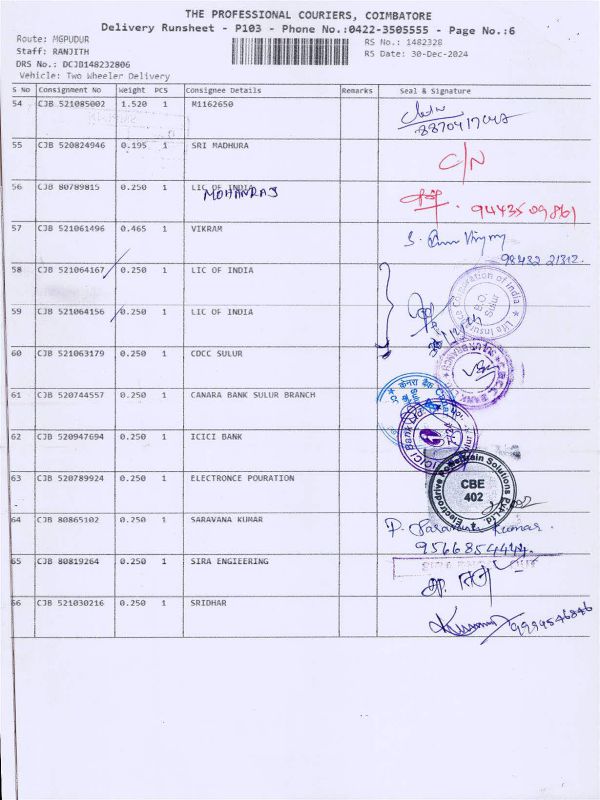 THE PROFESSIONAL COURIERS, COIMBATORE
Delivery Runsheet - P103 - Phone No.:0422-3505555 - Page No.:6
Route: MGPUDUR
RS No.: 1482328
Staff: RANJITH
RS Date: 30-Dec-2024
DRS No.: DCJB148232806
Vehicle: Two Wheeler Delivery
S No Consignment No Weight PCS Consignee Details Remarks Seal & Signature
54 CJB 521085002 1.520 1 M1162650
55 CJB 520824946 0.195 1 SRI MADHURA C/N
56 CJB 80789815 0.250 1 LIC OF INDIA
MOHANRAJ
9443509861
57 CJB 521061496 0.465 1 VIKRAM
98432 21312.
58 CJB 521064167 0.250 1 LIC OF INDIA
Life Insurance Corporation of India
B.O.
Sulur
59 CJB 521064156 0.250 1 LIC OF INDIA
60 CJB 521063179 0.250 1 CDCC SULUR
61 CJB 520744557 0.250 1 CANARA BANK SULUR BRANCH
केनरा बैंक
62 CJB 520947694 0.250 1 ICICI BANK
ICICI Bank
63 CJB 520789924 0.250 1 ELECTRONCE POURATION
Electrodrive Powertrain Solutions Pvt. Ltd.
CBE
402
64 CJB 80865102 0.250 1 SARAVANA KUMAR
P. Saravana Kumar.
9566854444.
65 CJB 80819264 0.250 1 SIRA ENGIEERING
66 CJB 521030216 0.250 1 SRIDHAR
9994546846